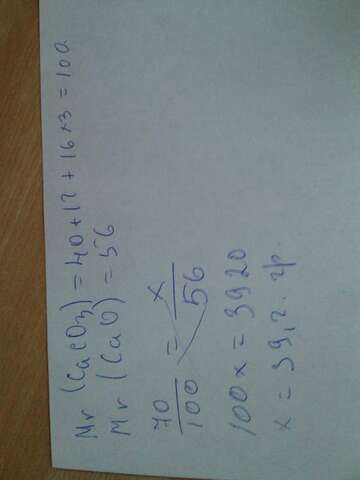 Mr (CaCO3) = 40 + 12 + 16 × 3 = 100
Mr (CaO) = 56
70/100 = x/56
100x = 3920
x = 39,2 гр.